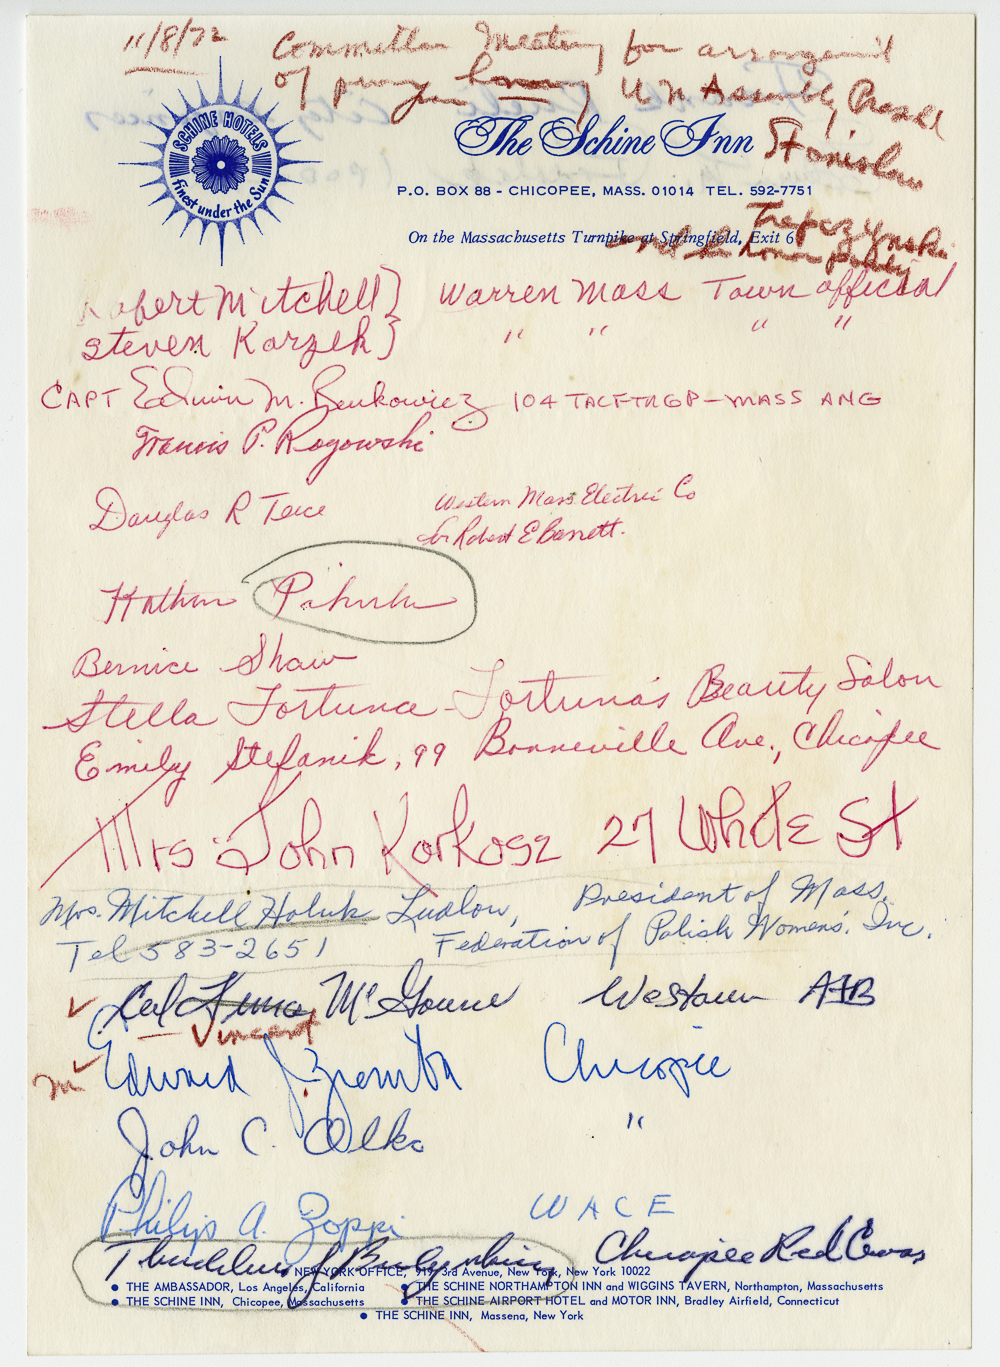 11/8/72 Committee Meeting for arrangement
of program honoring U.N. Assembly Presid
Stanislaw
Trepczynski
SCHINE HOTELS
Finest under the Sun
The Schine Inn
P.O. BOX 88 - CHICOPEE, MASS. 01014 TEL. 592-7751
On the Massachusetts Turnpike at Springfield, Exit 6
Robert Mitchell } Warren Mass Town official
Steven Karzek } " " " "
CAPT Edwin M. Benkowicz 104 TACFTRGP-MASS ANG
Francis P. Rogowski
Douglas R Teece Western Mass Electric Co
for Robert E Barrett.
Bernice Shaw
Stella Fortuna - Fortuna's Beauty Salon
Emily Stefanik, 99 Bonneville Ave., Chicopee
Mrs. John Korkosz 27 White St
Mrs. Mitchell Holuk Ludlow, President of Mass.
Tel 583-2651 Federation of Polish Women's. Inc.
Col McGowne Westover AFB
Vincent
m Edward J. Ziemba Chicopee
John C. Olko "
Philip A. Zoppi WACE
Chicopee Red Cross
NEW YORK OFFICE, 919 3rd Avenue, New York, New York 10022
• THE AMBASSADOR, Los Angeles, California • THE SCHINE NORTHAMPTON INN and WIGGINS TAVERN, Northampton, Massachusetts
• THE SCHINE INN, Chicopee, Massachusetts • THE SCHINE AIRPORT HOTEL and MOTOR INN, Bradley Airfield, Connecticut
• THE SCHINE INN, Massena, New York